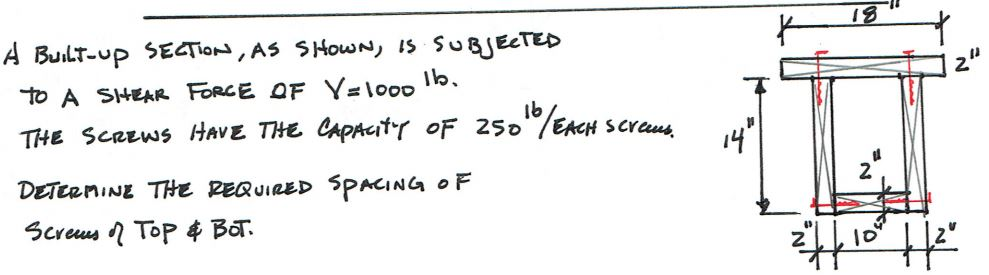 A BUILT-UP SECTION, AS SHOWN, IS SUBJECTED
TO A SHEAR FORCE OF V=1000 lb.
THE SCREWS HAVE THE CAPACITY OF 250 lb/EACH screws.
DETERMINE THE REQUIRED SPACING OF
Screws @ TOP & BOT.
18"
2"
14"
2"
2" 10" 2"